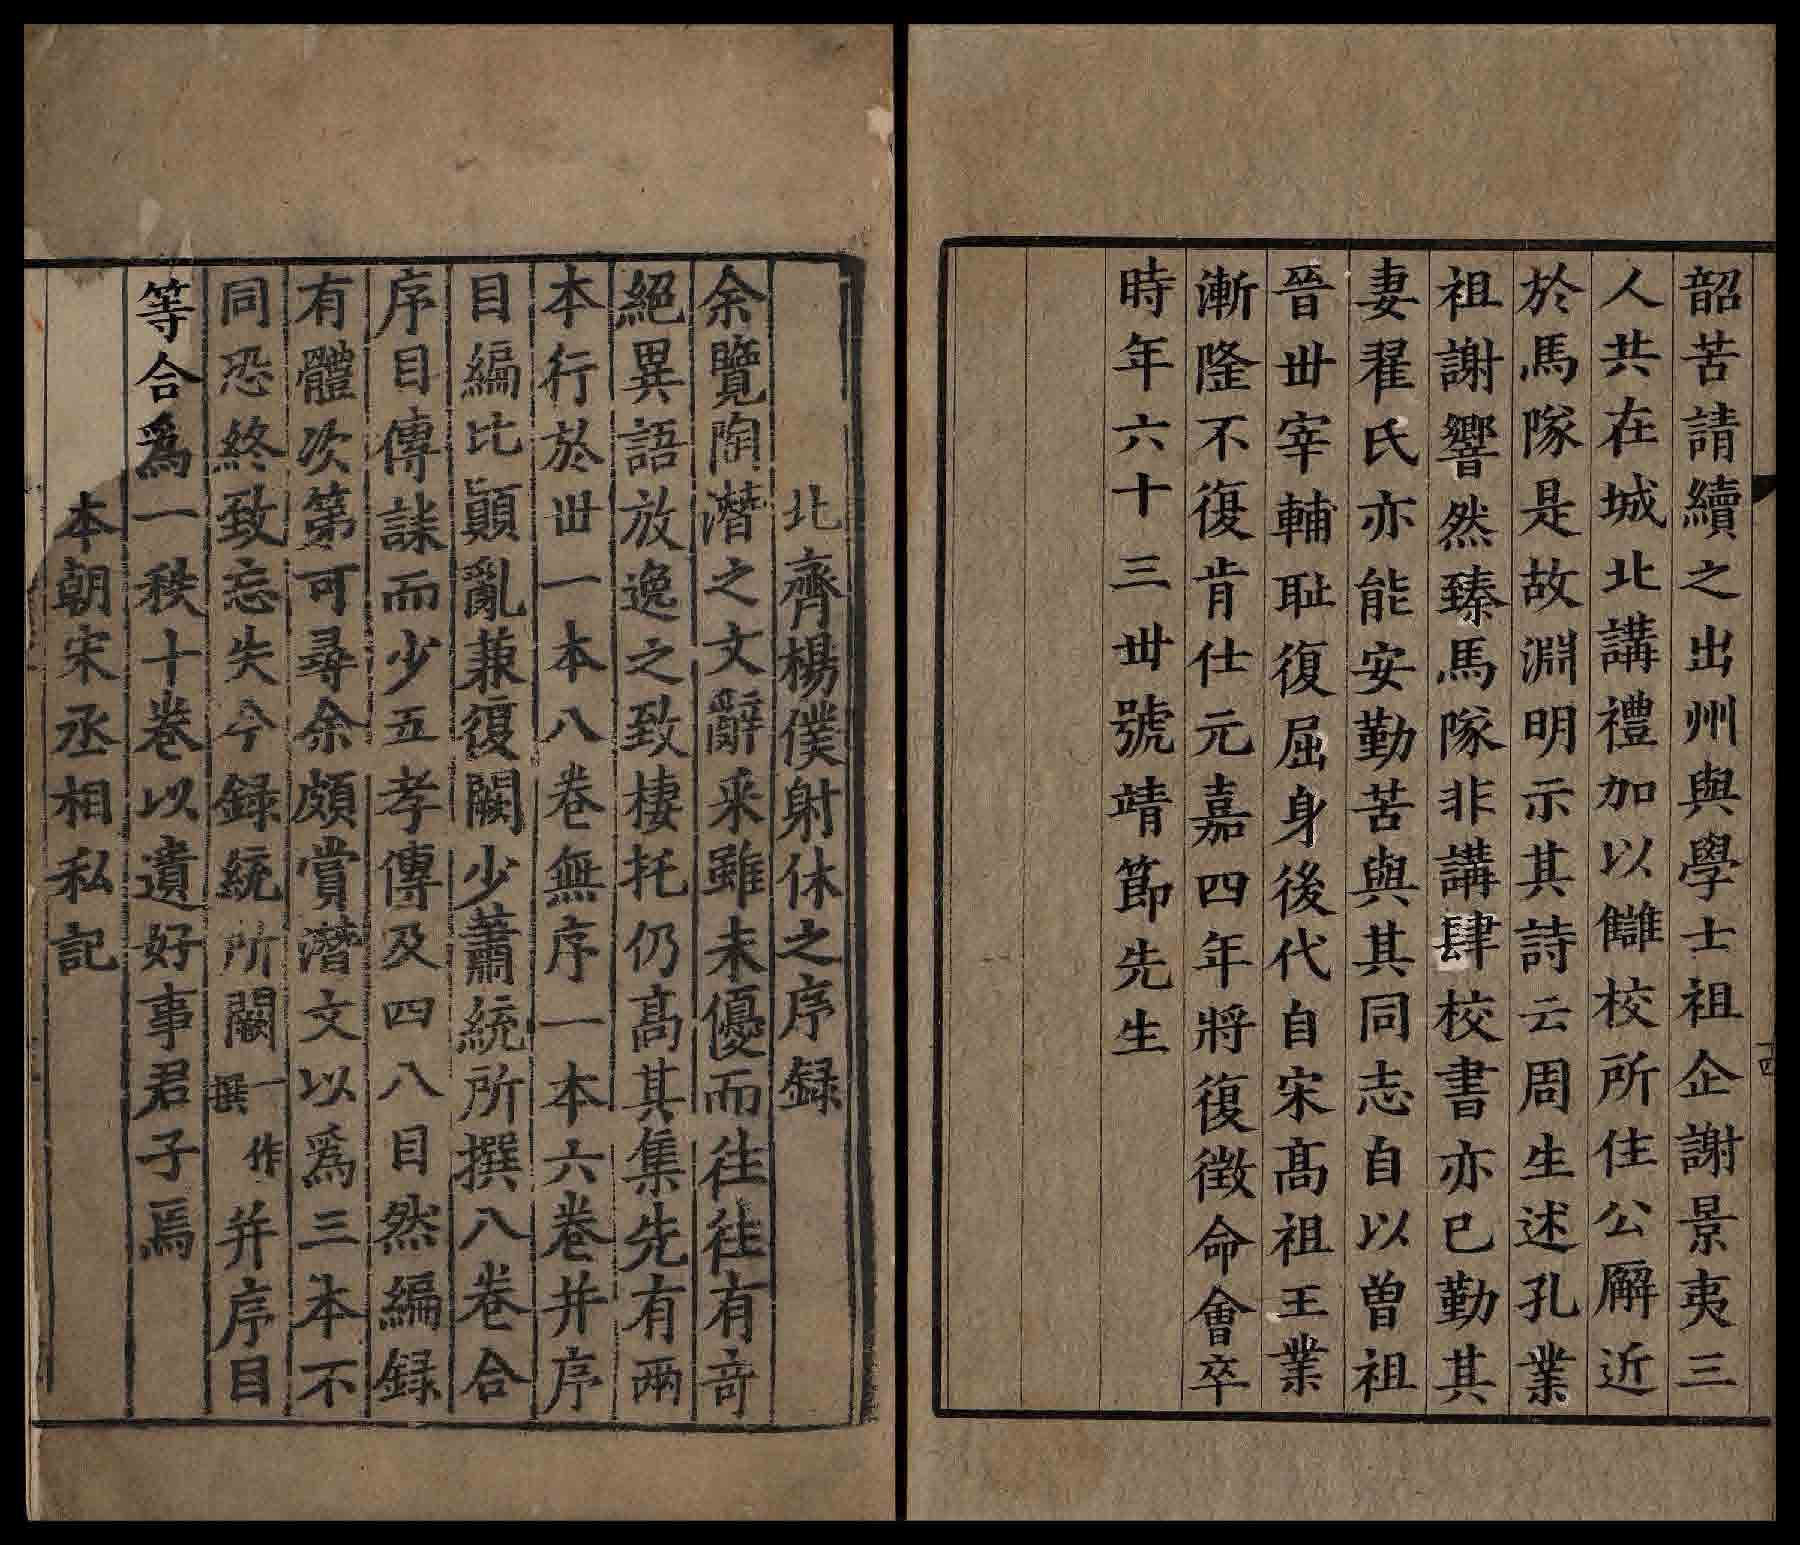 韶苦請續之出州與學士祖企謝景夷三
人共在城北講禮加以讎校所住公廨近
於馬隊是故淵明示其詩云周生述孔業
祖謝響然臻馬隊非講肆校書亦已勤其
妻翟氏亦能安勤苦與其同志自以曽祖
晉丗宰輔耻復屈身後代自宋髙祖王業
漸隆不復肯仕元嘉四年將復徴命會卒
時年六十三丗號靖節先生
十四
北齊楊僕射休之序録
余覽陶潛之文辭采雖未優而往往有竒
絕異語放逸之致棲托仍髙其集先有兩
本行於丗一本八卷無序一本六卷并序
目編比顛亂兼復闕少蕭統所撰八卷合
序目傳誄而少五孝傳及四八目然編録
有體次第可尋余頗賞潛文以爲三本不
同恐終致忘失今録統所闕一作撰并序目
等合爲一秩十卷以遺好事君子焉
本朝宋丞相私記